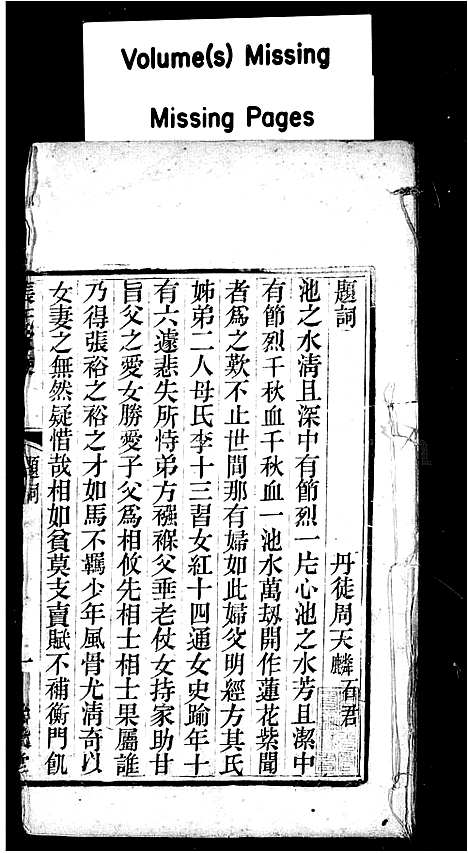 Volume(s) Missing
Missing Pages
題詞
丹徒周天麟石君
池之水淸且深中有節烈一片心池之水芳且潔中
有節烈千秋血千秋血一池水萬刼開作蓮花紫聞
者爲之歎不止世間那有婦如此婦父明經方其氏
姊弟二人母氏李十三習女紅十四通女史踰年十
有六遽悲失所恃弟方襁褓父垂老仗女持家助甘
旨父之愛女勝愛子父爲相攸先相士相士果屬誰
乃得張裕之裕之才如馬不羈少年風骨尤淸奇以
女妻之無然疑惜哉相如貧莫支賣賦不補衡門飢
題詞
一